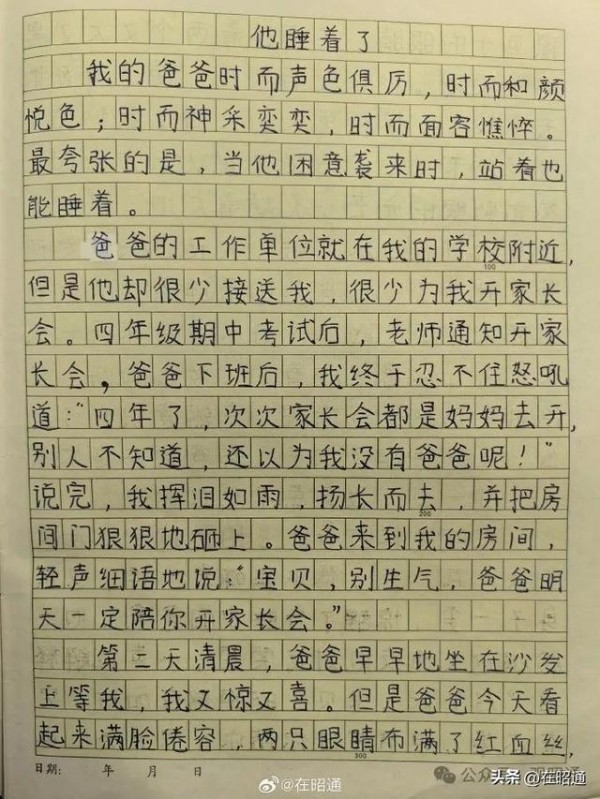 他睡着了
我的爸爸时而声色俱厉，时而和颜
悦色；时而神采奕奕，时而面容憔悴。
最夸张的是，当他困意袭来时，站着也
能睡着。
爸爸的工作单位就在我的学校附近，
100
但是他却很少接送我，很少为我开家长
会。四年级期中考试后，老师通知开家
长会，爸爸下班后，我终于忍不住怒吼
道："四年了，次次家长会都是妈妈去开，
别人不知道，还以为我没有爸爸呢！"
说完，我挥泪如雨，扬长而去，并把房
200
间门狠狠地砸上。爸爸来到我的房间，
轻声细语地说："宝贝，别生气，爸爸明
天一定陪你开家长会。"
第二天清晨，爸爸早早地坐在沙发
上等我，我又惊又喜。但是爸爸今天看
起来满脸倦容，两只眼睛布满了红血丝，
300
日期： 年 月 日
@在昭通
公众号
头条 @在昭通